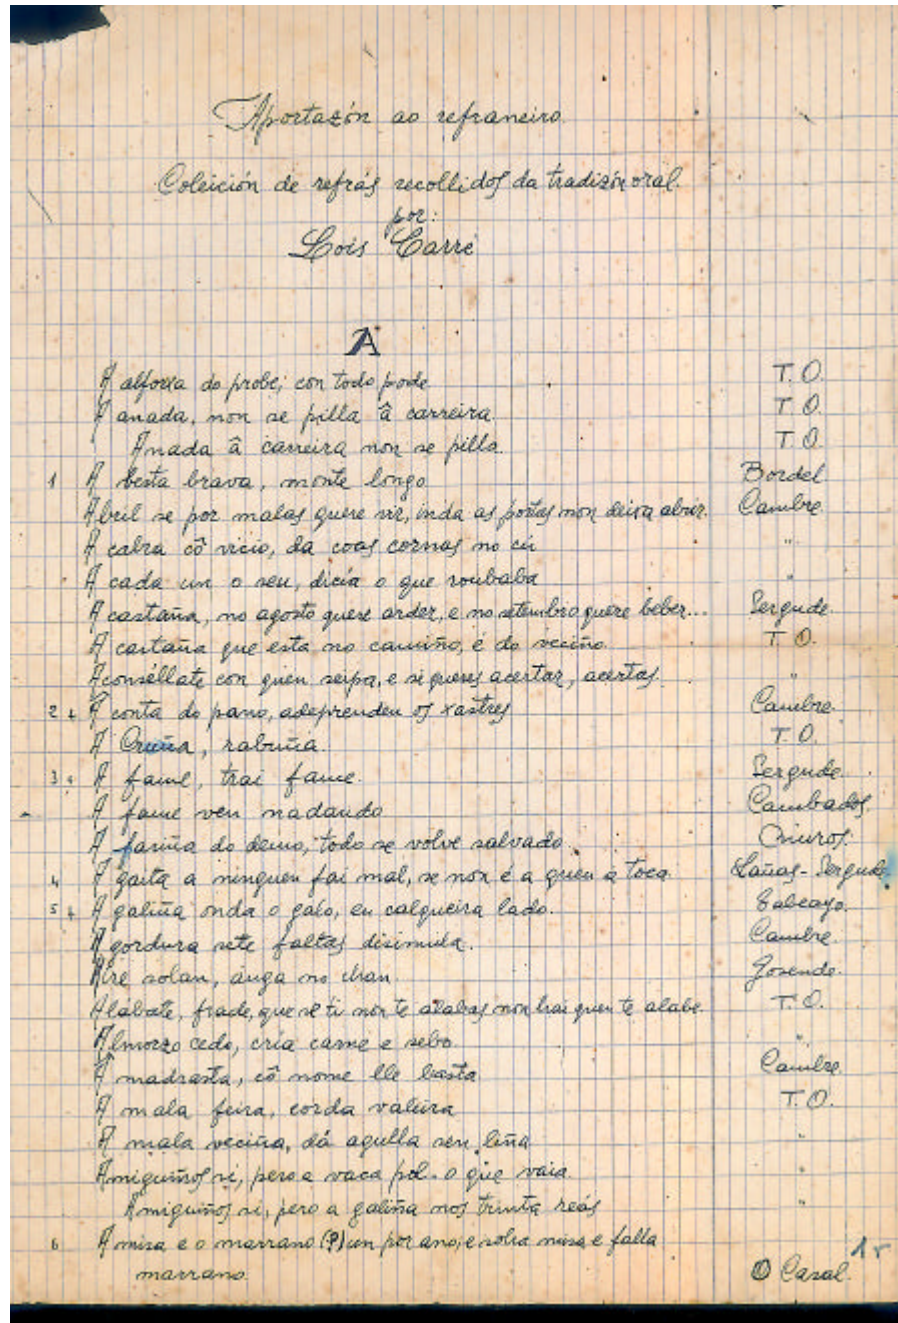 Aportazón ao refraneiro
Coleición de refrás recollidos da tradizón oral.
por:
Lois Carré
A
A alforxa do probe; con todo pode T. O.
A anada, non se pilla â carreira. T. O.
Anada â carreira non se pilla. T. O.
1 A besta brava, monte longo Bordel
Abril se por malas quere vir, inda as portas non deixa abrir. Cambre
A cabra cô vicio, da coas cornas no cú "
A cada un o seu, dicía o que roubaba "
A castaña, no agosto quere arder, e no setembro quere beber... Sergude.
A castaña que esta no camiño, é do veciño. T. O.
Aconséllate con quien seipa, e si queres acertar, acertas. "
2 + A conta do pano, adeprenden os xastres Cambre.
A Cruña, rabuña. T. O.
3 + A fame, trai fame. Sergude.
A fame ven nadando Cambados
A fariña do demo, todo se volve salvado.
4 A gaita a ninguen fai mal, se non é a quen a toca. Sergude.
5 + A galiña onda o galo, en calqueira lado.
A gordura sete faltas disimula. Cambre.
Aire solan, auga no chan. Gosende.
Alábate, frade, que se ti non te alabas non hai quen te alabe. T. O.
Almorzo cedo, cría carne e sebo. "
A madrasta, cô nome lle basta Cambre.
A mala feira, corda valeira T. O.
A mala veciña, dá agulla sen liña "
Amiguiños si, pero a vaca pol-o que vaia. "
Amiguiños si, pero a galiña nos trinta reás "
6 A misa e o marrano (?) un por ano; e sobra misa e falla
marrano. O Casal.
1r